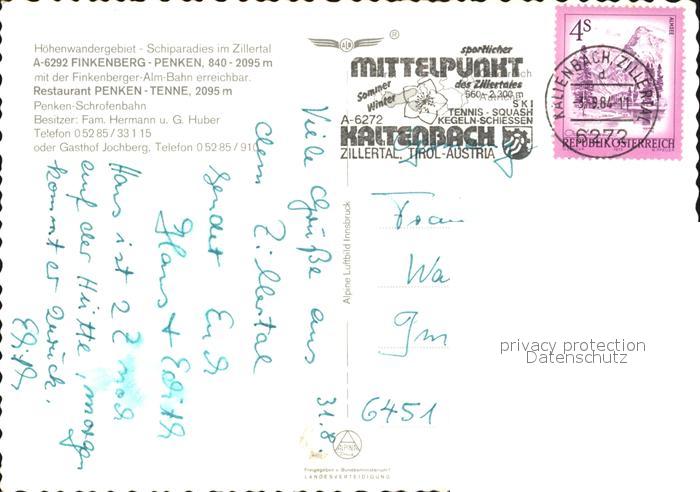 Höhenwandergebiet - Schiparadies im Zillertal
A-6292 FINKENBERG - PENKEN, 840 - 2095 m
mit der Finkenberger-Alm-Bahn erreichbar.
Restaurant PENKEN - TENNE, 2095 m
Penken-Schrofenbahn
Besitzer: Fam. Hermann u. G. Huber
Telefon 0 52 85 / 33 1 15
oder Gasthof Jochberg, Telefon 0 52 85 / 910
sportlicher
MITTELPUNKT
des Zillertales
560 - 2.300 m
Sommer
Winter
SKI
TENNIS - SQUASH
KEGELN - SCHIESSEN
A-6272
KALTENBACH
ZILLERTAL, TIROL-AUSTRIA
KALTENBACH, ZILLERTAL
6272
4S
ALMSEE
REPUBLIK ÖSTERREICH
31.8.
Viele Grüße aus
dem Zillertal
sendet Euch
Hans + Edith
Hans ist z Z noch
auf der Hütte, morgen
kommt er zurück.
Edith
Alpine Luftbild Innsbruck
Frau
Wa
Gm
6451
privacy protection
Datenschutz
ALPINE
Freigegeben v. Bundesministerium f.
LANDESVERTEIDIGUNG